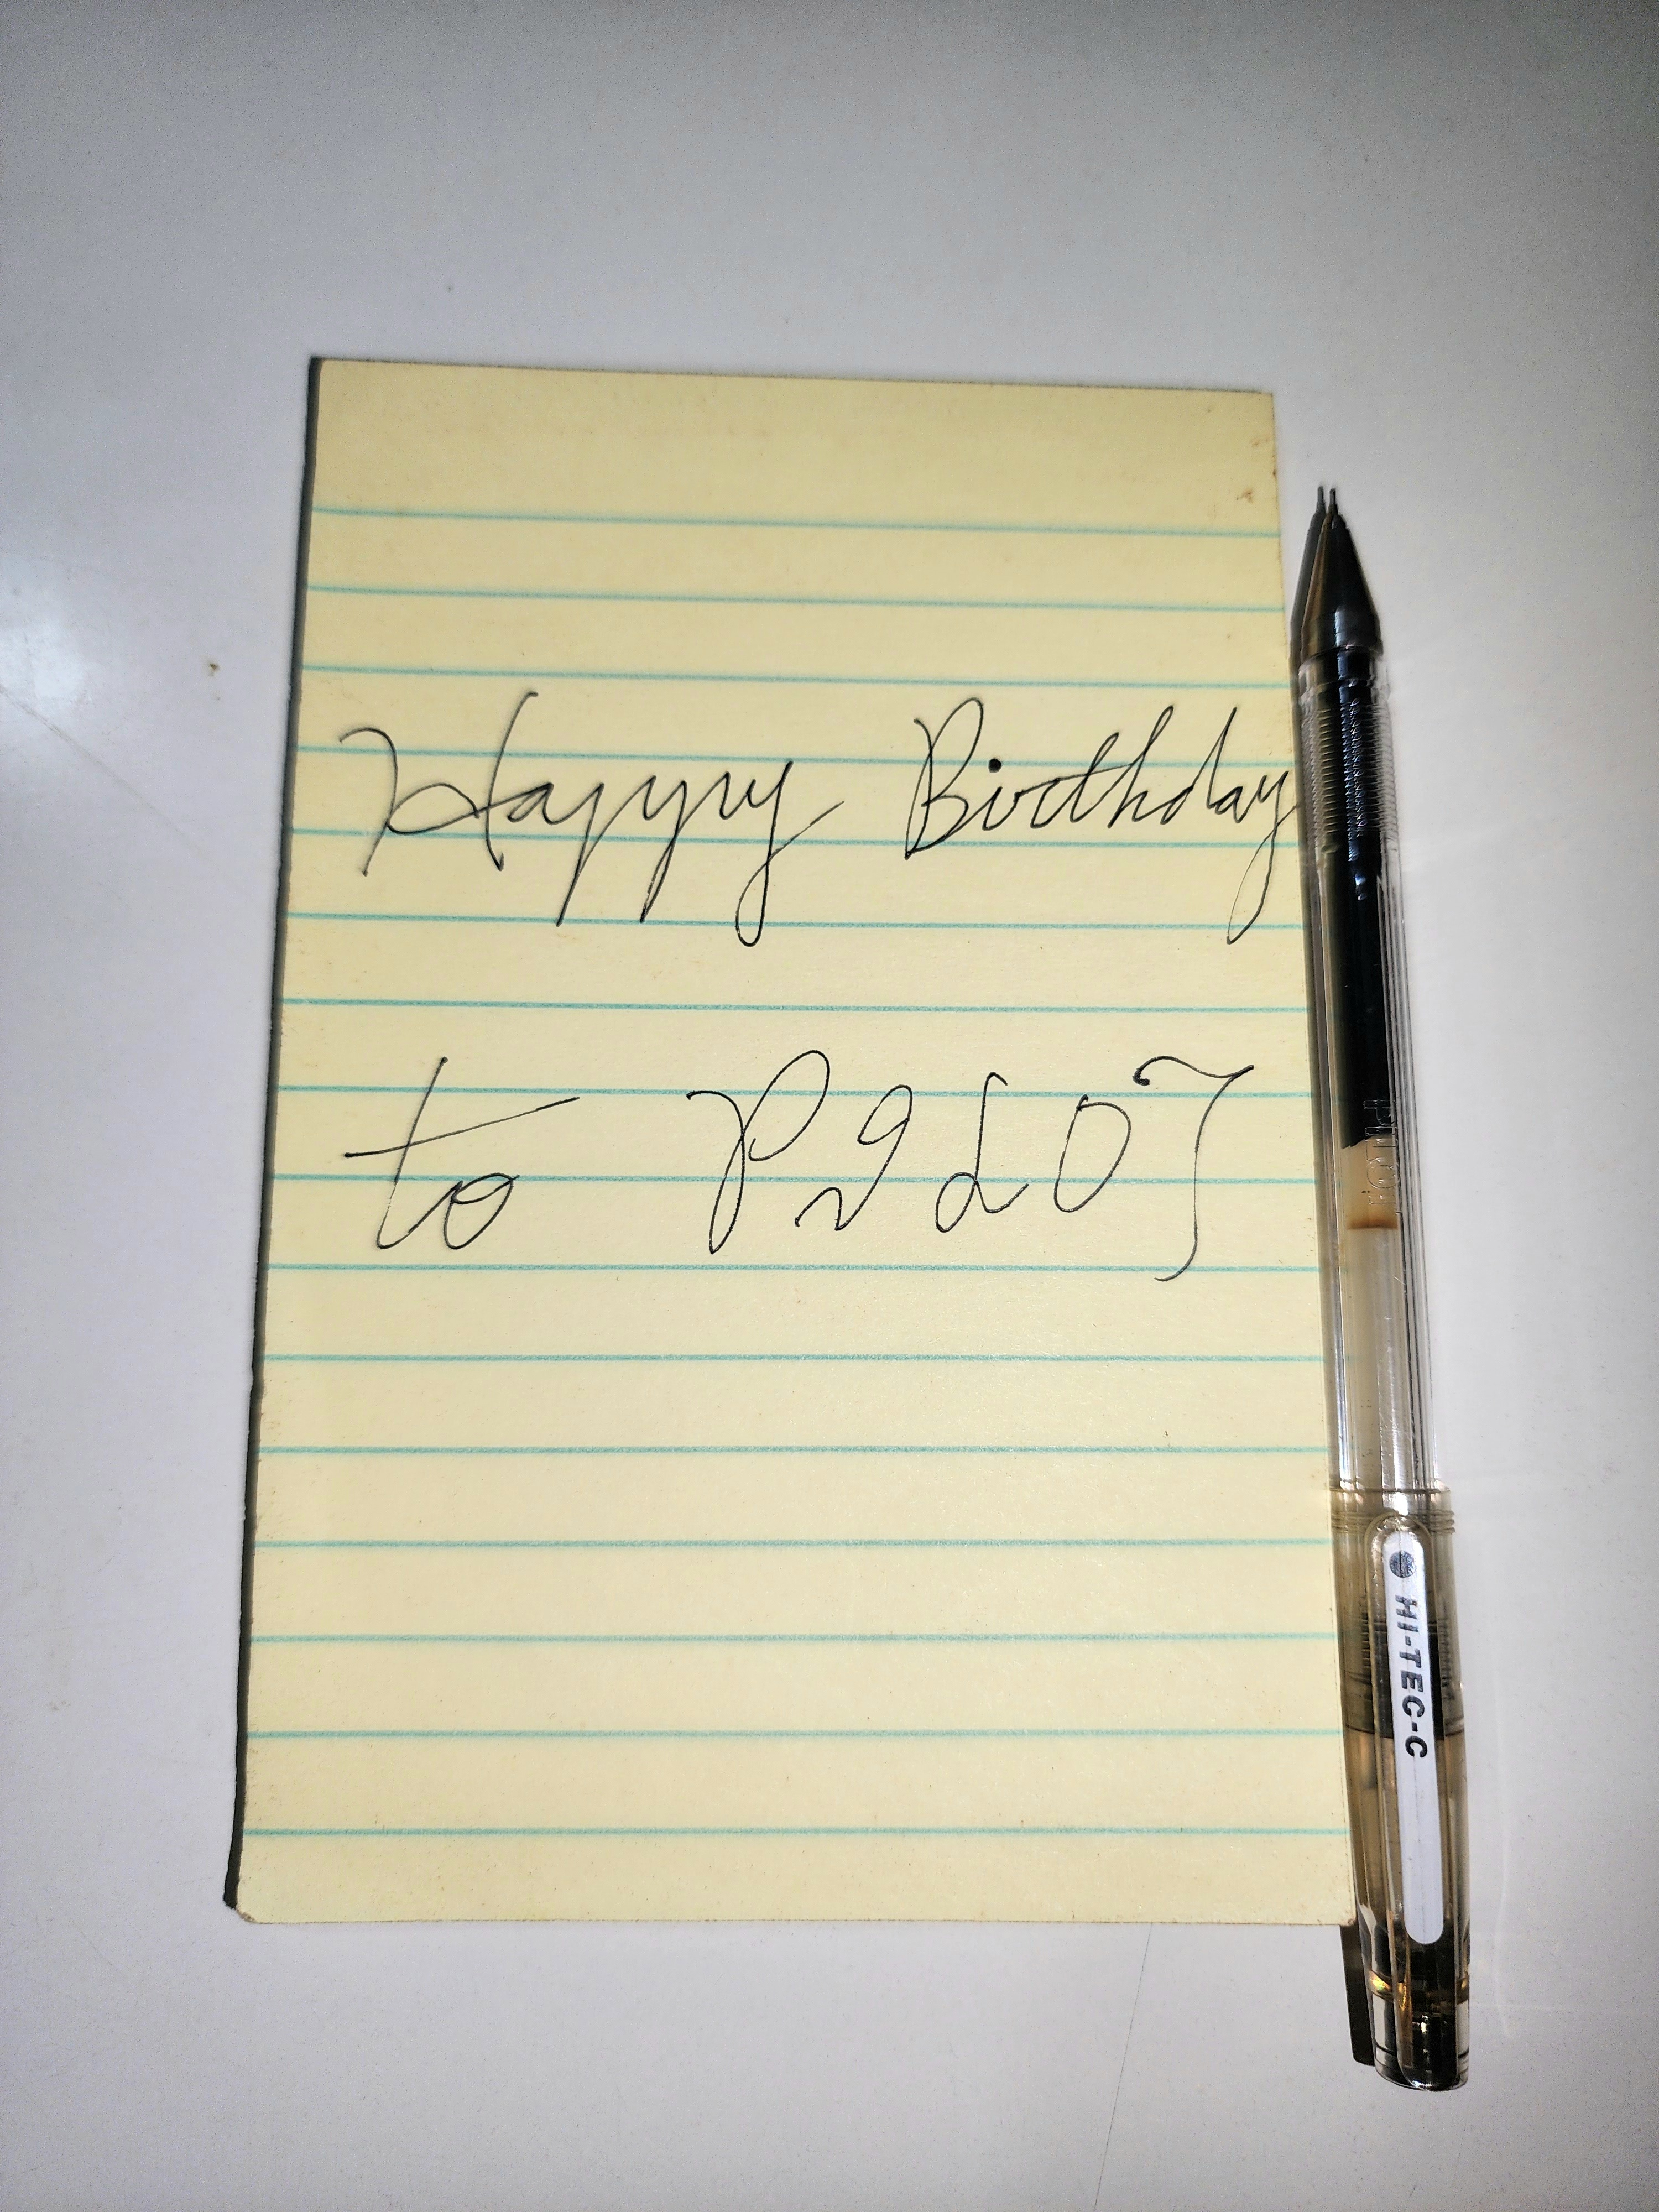 Happy Birthday
to PILOT
PILOT
HI-TEC-C